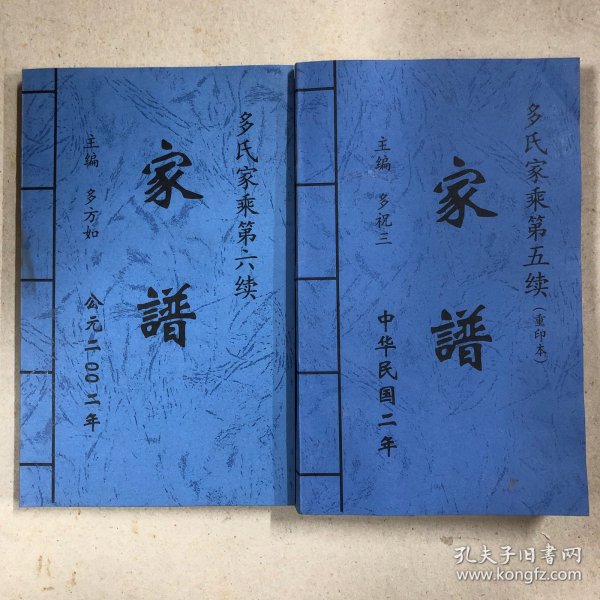 多氏家乘第六续
家譜
主编 多方如
公元二〇〇二年
多氏家乘第五续(重印本)
家譜
主编 多祝三
中华民国二年
孔夫子旧书网
www.kongfz.com